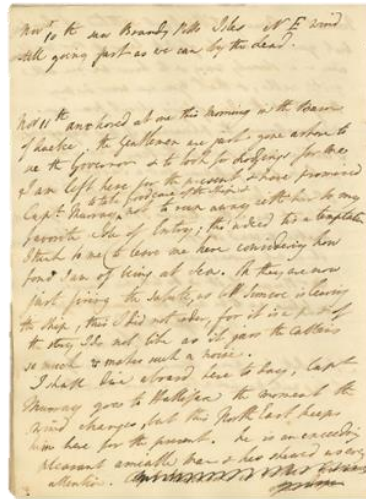 Novr 10th saw Brandy Potts Isles N E wind
still going fast as we can by the Lead.
Nov 11th anchored at one this Morning in the Bason
of Quebec. the Gentlemen are just gone ashore to
see the Governor & to look for Lodgings for me
& I am left here for the present & have promised
to take good care of the Ship &
Capt. Murray not to run away with her to my
favorite Isle of Entry; this indeed tis a temptation
I think to me to leave me here considering how
fond I am of being at Sea. Oh they are now
just firing the Salute, as Coll Simcoe is leaving
the Ship, this I did not order, for it is a part of
the story I do not like as it jars the Cabbin
so much & makes such a noise.
I shall dine aboard here to day, Capt
Murray goes to Hallifax the moment the
wind changes, but this North East keeps
him here for the present. he is an exceeding
pleasant amiable Man & has shewed us every
attention.